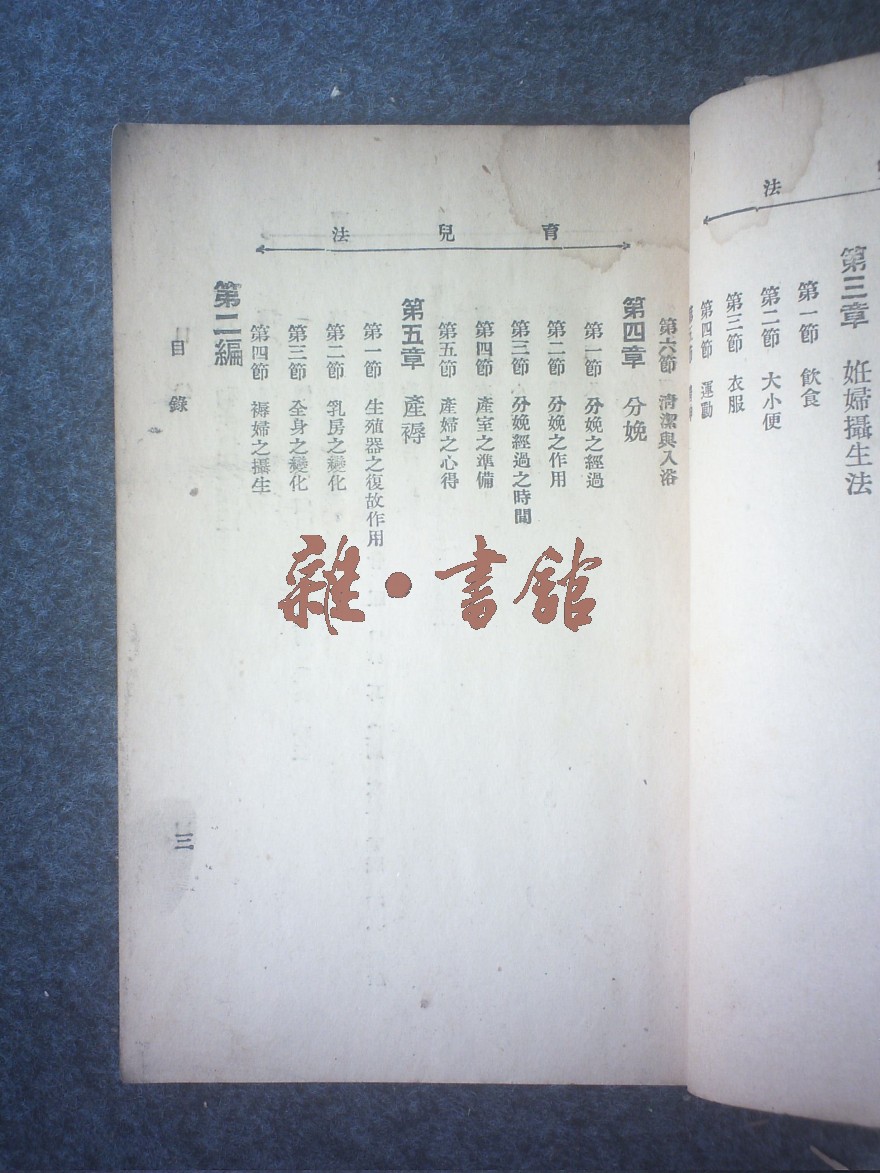 法
第三章　妊婦攝生法
第一節　飲食
第二節　大小便
第三節　衣服
第四節　運動
育兒法
第六節　清潔與入浴
第四章　分娩
第一節　分娩之經過
第二節　分娩之作用
第三節　分娩經過之時間
第四節　產室之準備
第五節　產婦之心得
第五章　產褥
第一節　生殖器之復故作用
第二節　乳房之變化
第三節　全身之變化
第四節　褥婦之攝生
第二編
目錄
三
雜·書館